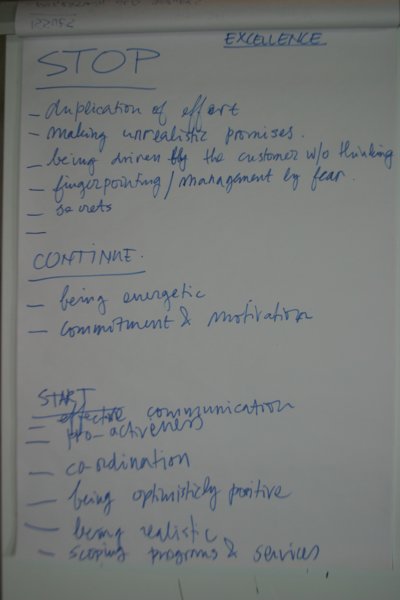 EXCELLENCE
STOP
- duplication of effort
- making unrealistic promises.
- being driven by the customer w/o thinking
- fingerpointing / management by fear.
- secrets
-
CONTINUE.
- being energetic
- commitment & motivation
START
- effective communication
- pro-activeness
- co-ordination
- being optimisticly positive
- being realistic
- scoping programs & services